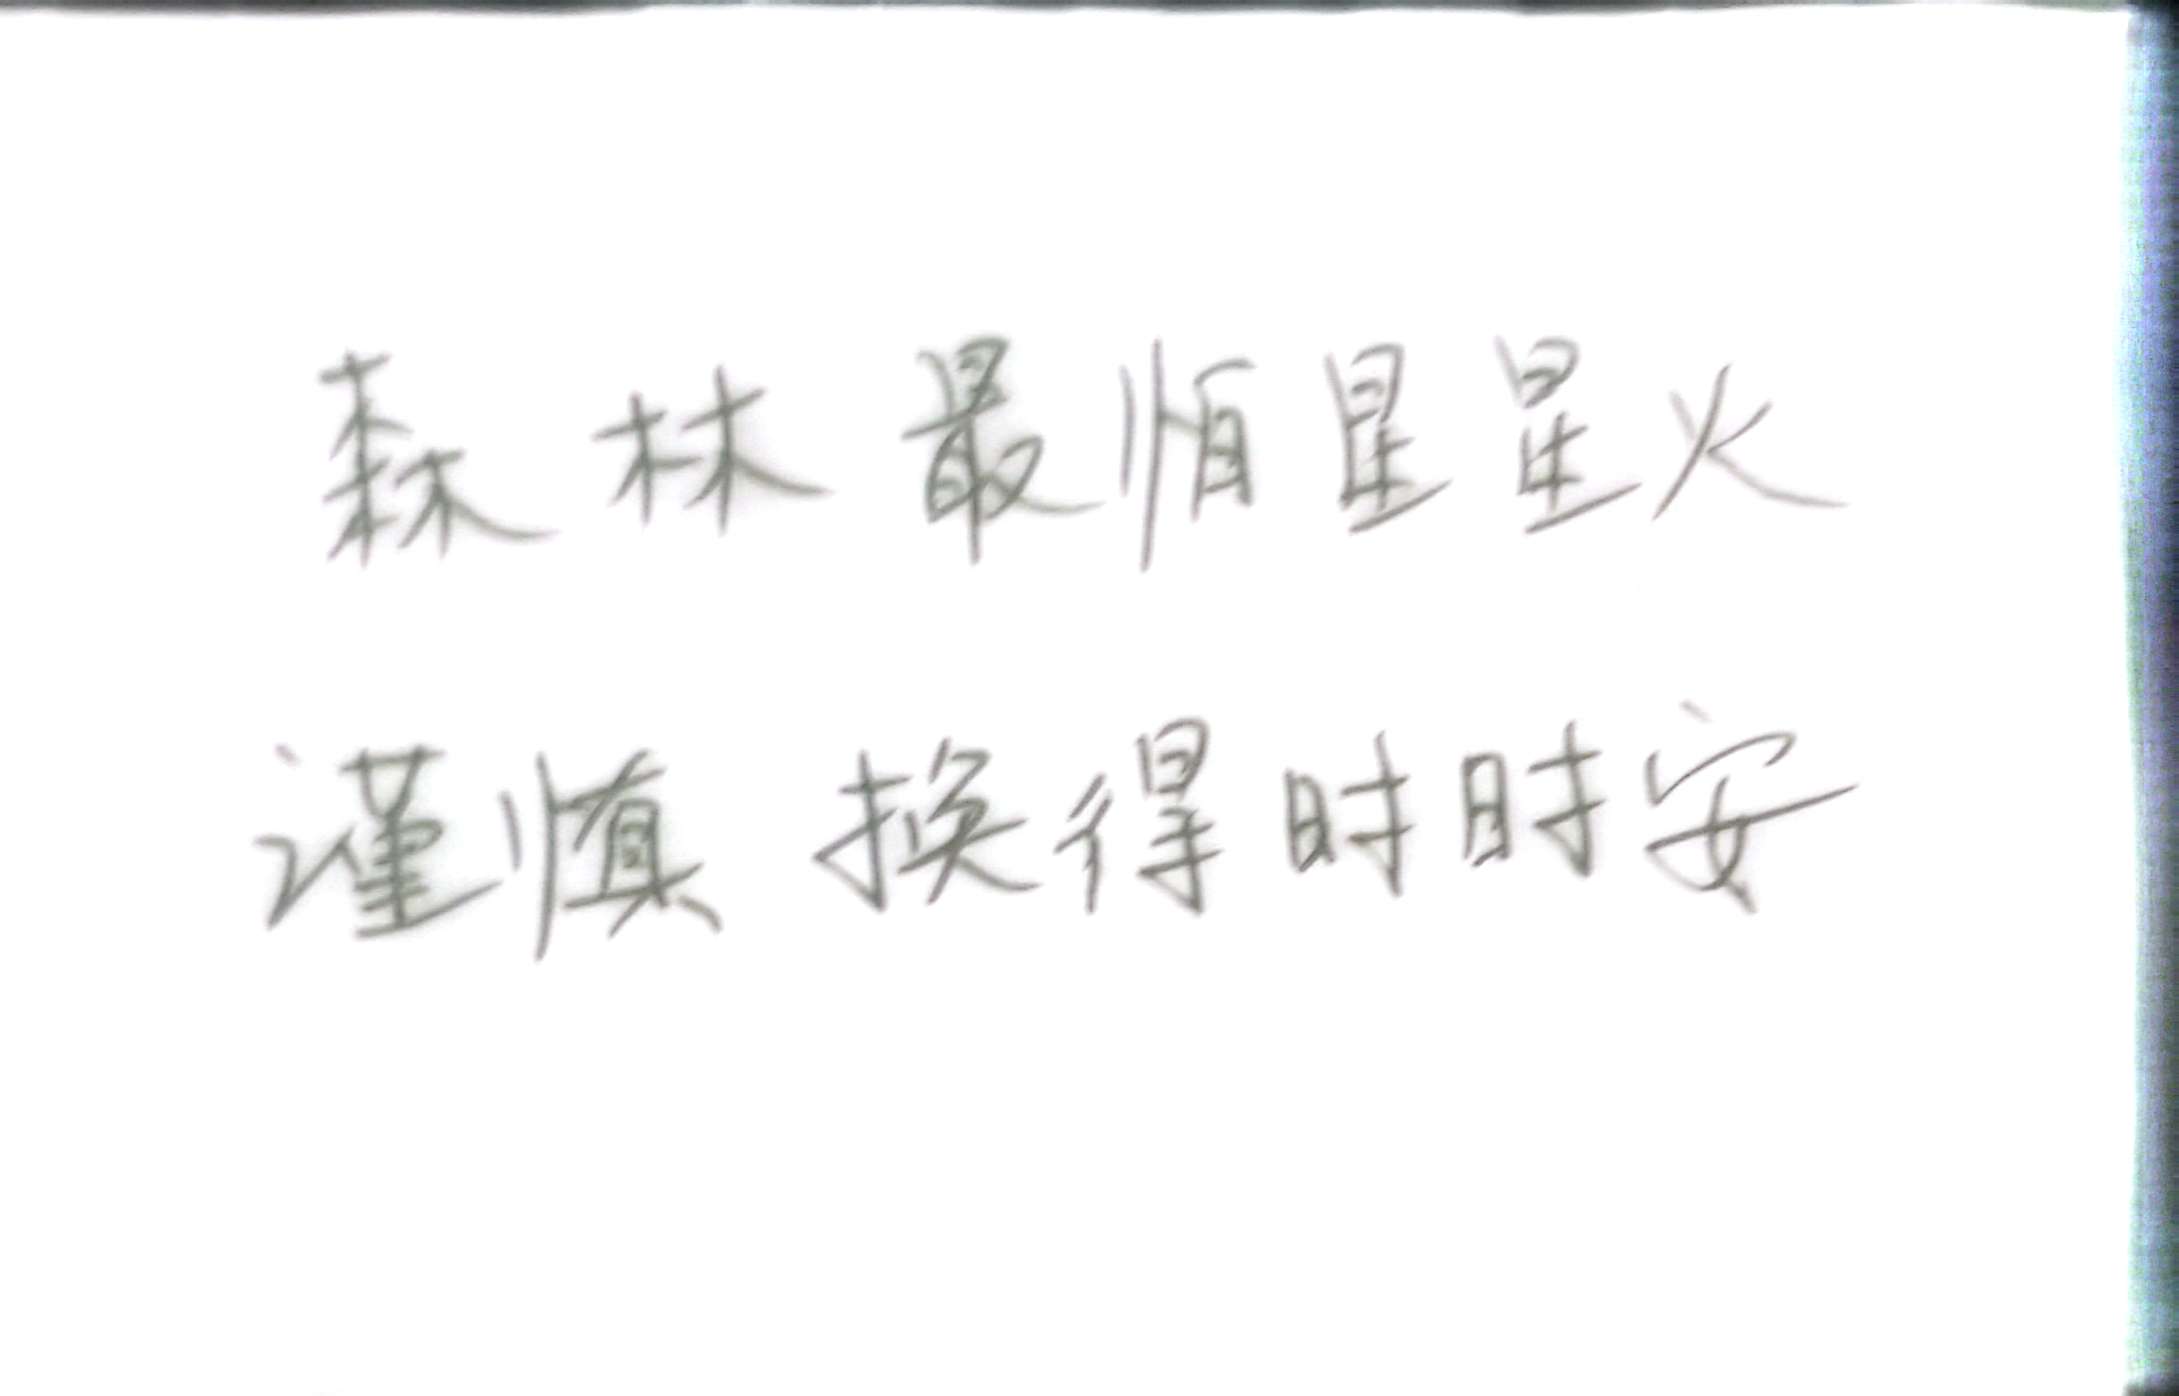 森林最怕星星火
谨慎换得时时安